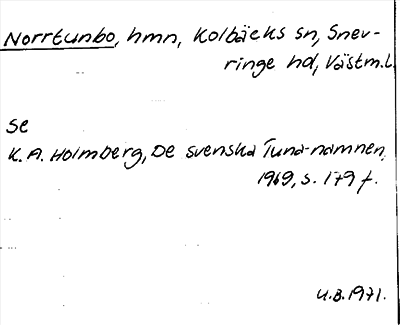 Norrtunbo, hmn, Kolbäcks sn, Snev-
ringe hd, Västm.l.
se
K.A. Holmberg, De svenska Tuna-namnen,
1969, s. 179 f.
U.B. 1971.